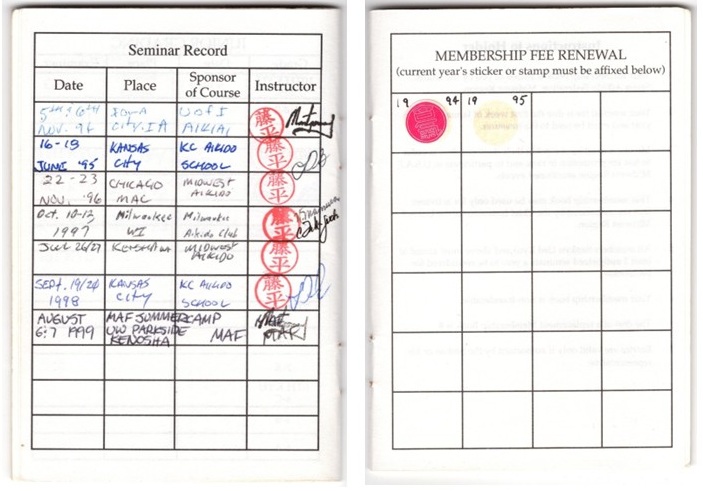 Seminar Record
Date Place Sponsor of Course Instructor
5th & 6th Iowa U of I
Nov. 94 City, IA Aikikai 藤平
16-18 Kansas KC Aikido
June '95 City School 藤平
22-23 Chicago Midwest
Nov. '96 MAC Aikido 藤平
Oct. 10-12 Milwaukee Milwaukee
1997 WI Aikido Club 藤平
26/27 Kenosha Midwest
Aikido 藤平
Sept. 19/20 Kansas KC Aikido
1998 City School 藤平
August MAF Summer Camp
6-7 1999 UW Parkside MAF
Kenosha
MEMBERSHIP FEE RENEWAL
(current year's sticker or stamp must be affixed below)
19 94 19 95